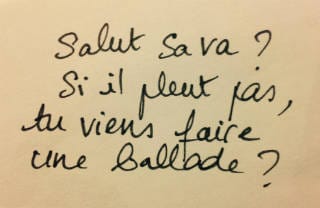 Salut sava ?
Si il pleut pas,
tu viens faire
une ballade ?